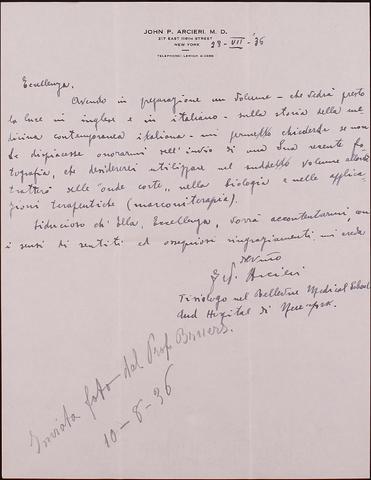 JOHN P. ARCIERI, M. D.
217 EAST 116TH STREET
NEW YORK
28 - VII - '36
Eccellenza,
Avendo in preparazione un volume - che vedrà presto
la luce in inglese e in italiano - sulla storia della me
dicina contemporanea italiana - mi permetto chiederLe se non
Le dispiacesse onorarmi dell'invio di una Sua recente fo
tografia, che desidererei utilizzare nel suddetto volume
tratterò delle "onde corte" nella biologia e nelle applica
zioni terapeutiche (marconiterapia).
Fiducioso ch'Ella, Eccellenza, vorrà accontentarmi con
i sensi di sentiti ed ossequiosi ringraziamenti mi creda
Arcieri
Tisiologo nel Bellevue Medical School
and Hospital di New-York.
Inviata foto dal Prof.
10-8-36